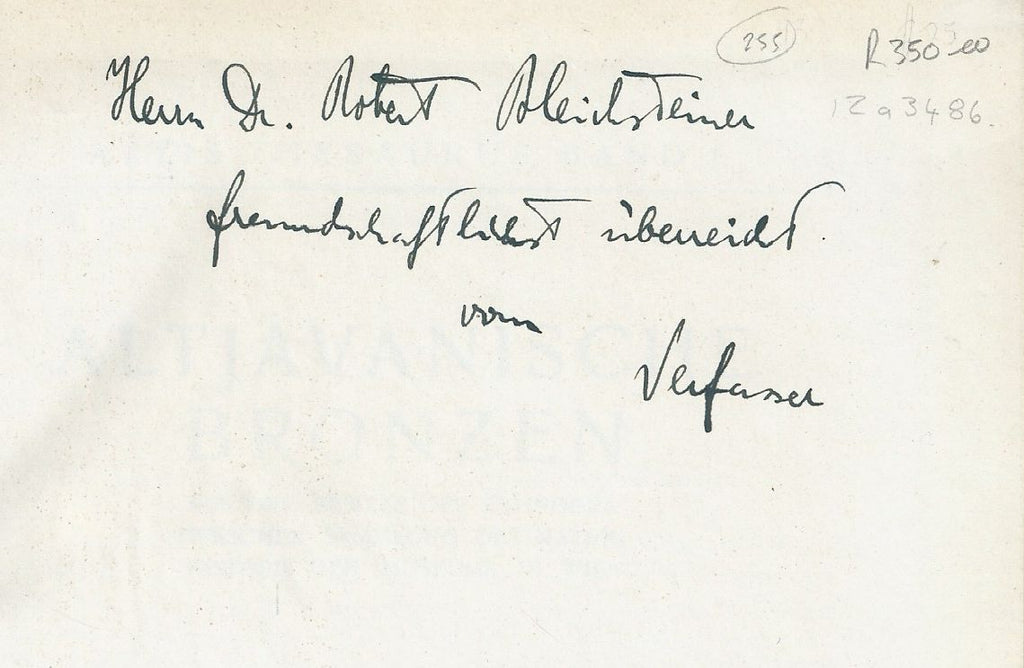 255
R350-00
12a3486.
Herrn Dr. Robert Bleichsteiner
freundschaftlichst überreicht
vom
Verfasser
ALTJAVANISCHE
BRONZEN